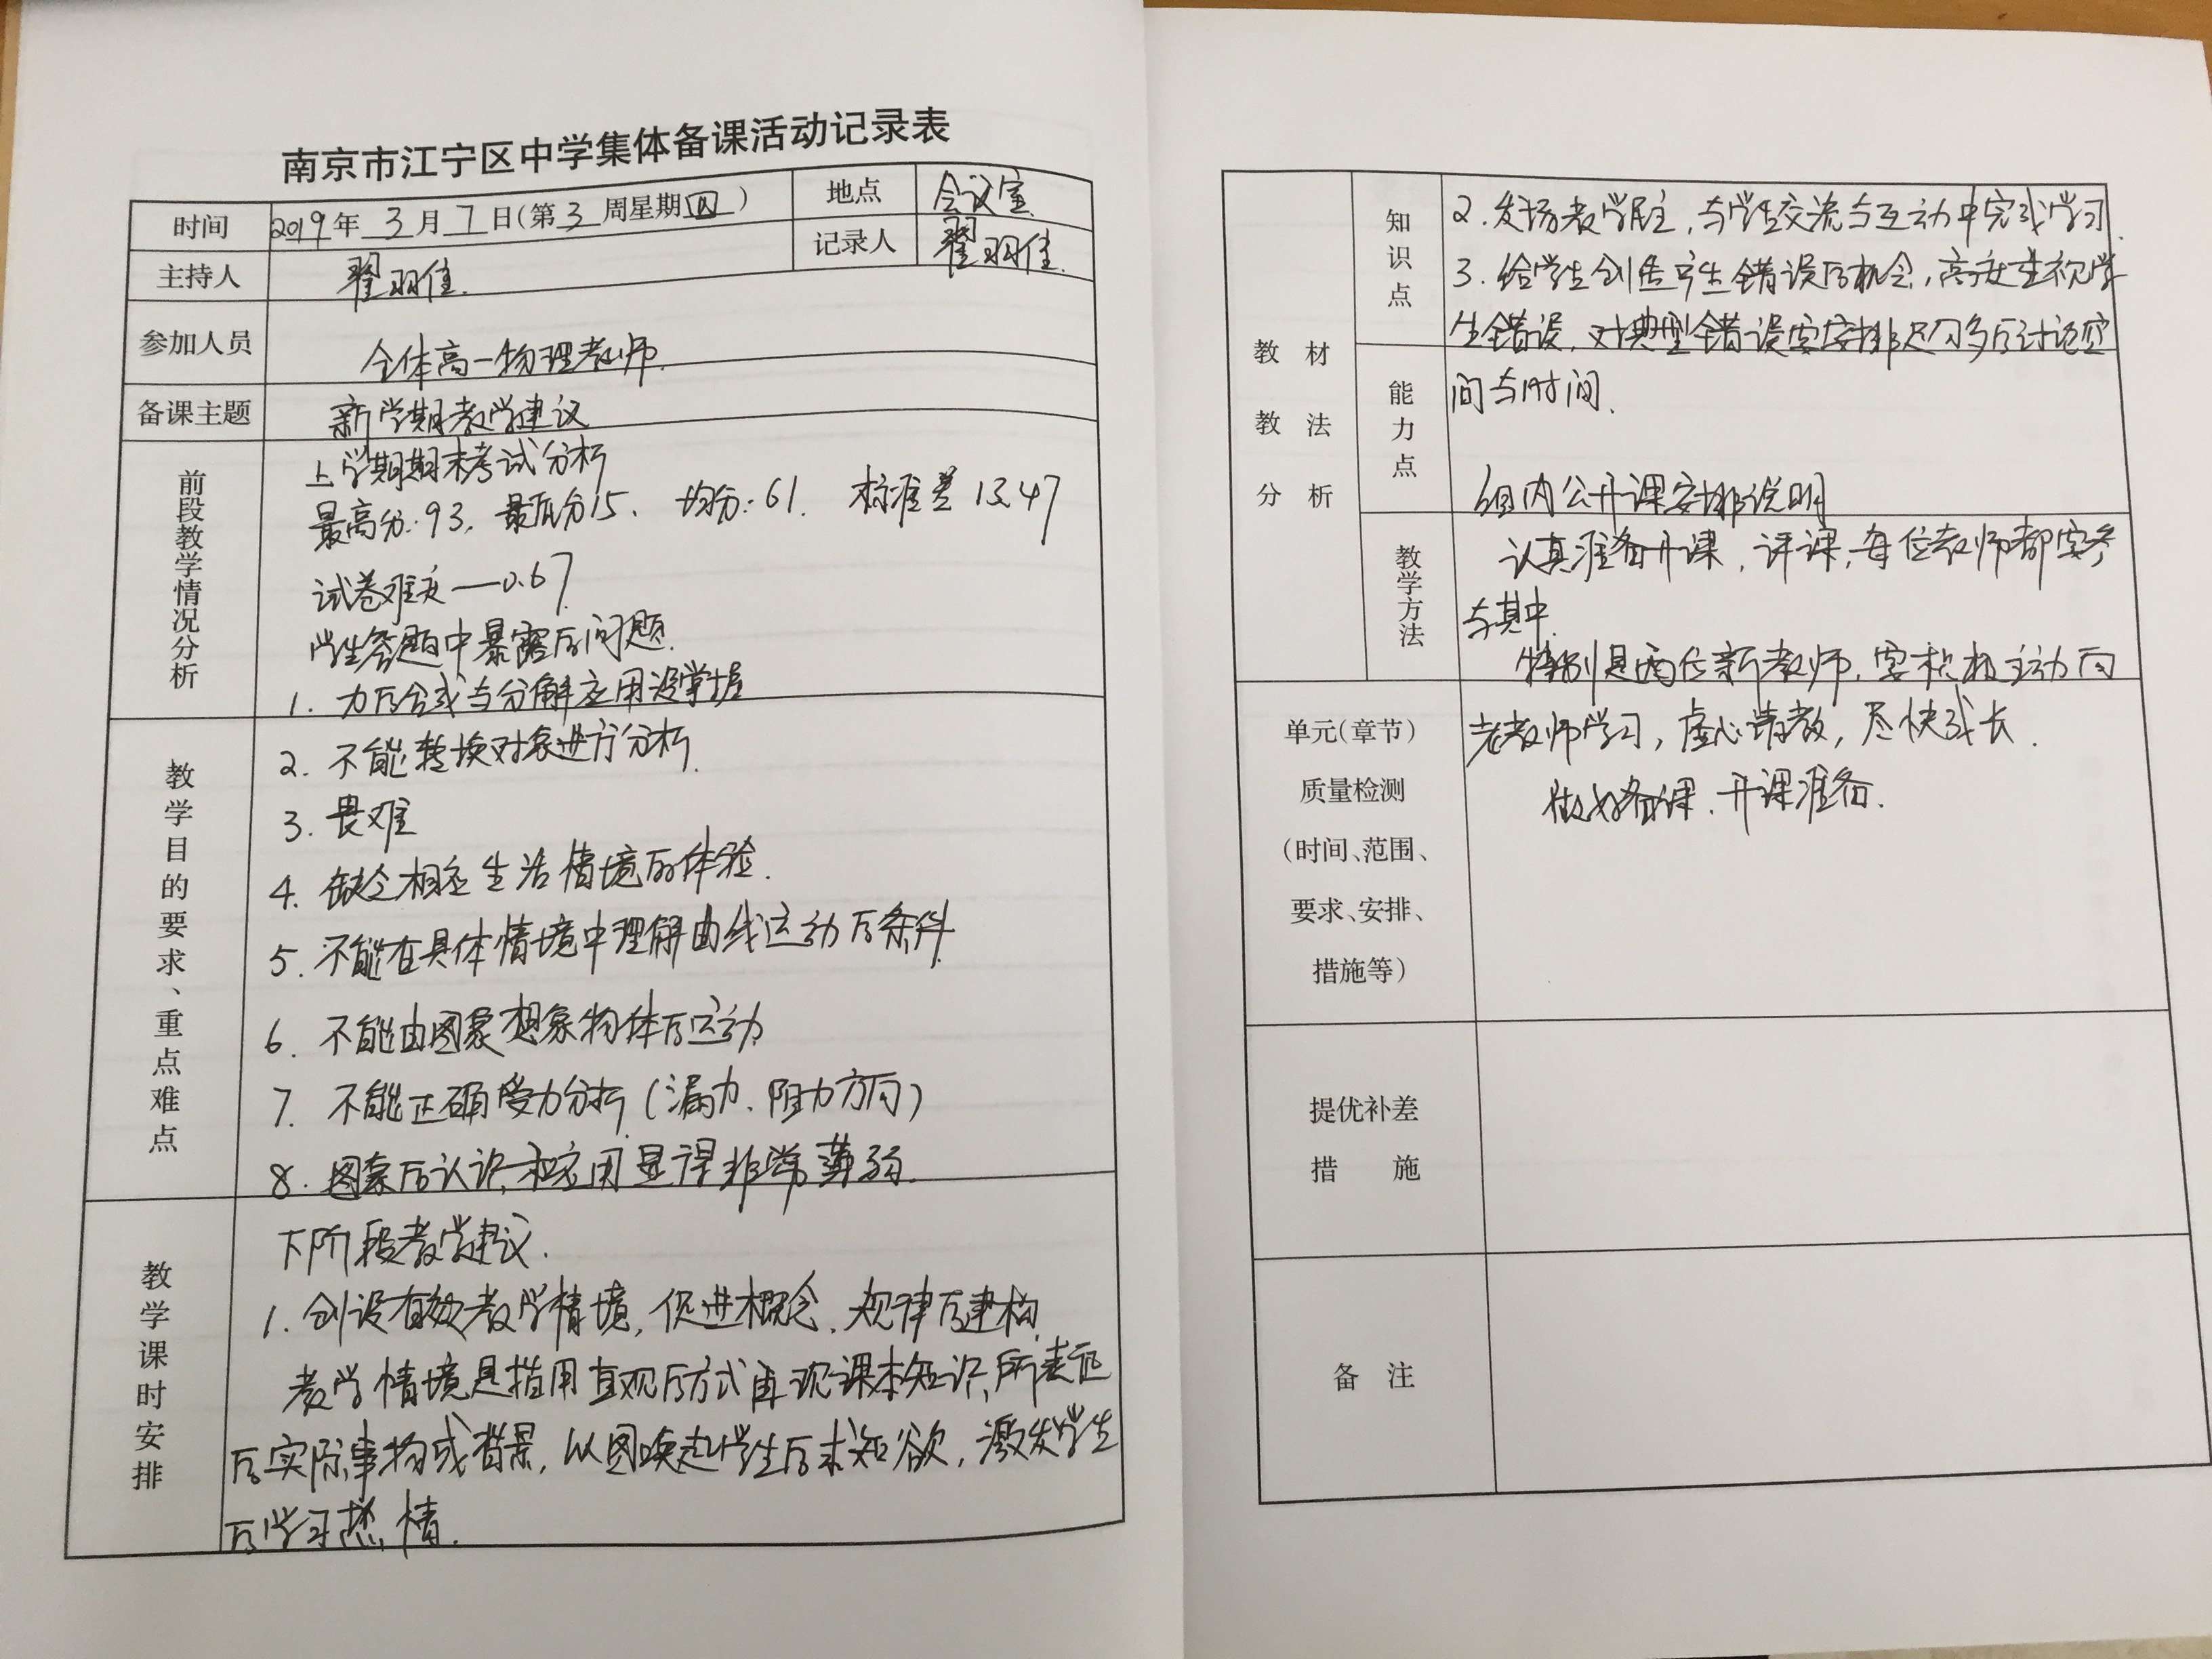 南京市江宁区中学集体备课活动记录表
时间 2019年 3月 7日(第3周星期四) 地点 会议室
主持人 翟羽佳 记录人 翟羽佳
参加人员 全体高一物理教师.
备课主题 新学期教学建议
前段教学情况分析
上学期期末考试分析
最高分:93, 最低分15、 均分:61. 标准差 13.47
试卷难度—0.67
学生答题中暴露的问题.
1. 力的合成与分解应用没掌握
教学目的要求、重点难点
2. 不能转换对象进行分析.
3. 畏难
4. 缺乏相应生活情境的体验.
5. 不能在具体情境中理解曲线运动的条件.
6. 不能由图象想象物体的运动
7. 不能正确受力分析(漏力、阻力方向)
8. 图象的认识和应用显得非常薄弱.
教学课时安排
下阶段教学建议.
1. 创设有效教学情境, 促进概念、规律的建构.
教学情境是指用直观的方式再现课本知识所表征
的实际事物或背景, 以图唤起学生的求知欲, 激发学生
的学习热情.
教材教法分析
知识点
2. 发扬教学民主, 与学生交流与互动中完成学习.
3. 给学生创造产生错误的机会, 高度重视学
生错误, 对典型错误要安排尽可多的讨论空
能力点
间与时间.
组内公开课安排说明
教学方法
认真准备开课, 评课, 每位教师都要参
与其中.
特别是两位新教师, 要积极主动向
单元(章节)
老教师学习, 虚心请教, 尽快成长.
质量检测
做好备课、开课准备.
(时间、范围、
要求、安排、
措施等)
提优补差
措 施
备 注